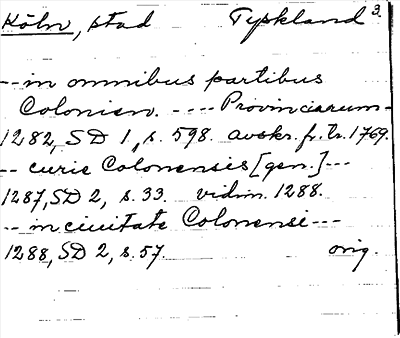 Köln, stad Tyskland 3.
-- in omnibus partibus
Colonien. ---- Provinciarum -
1282, SD 1, s. 598. avskr. fr. tr. 1769.
-- curie Colonensis [gen.] ---
1287, SD 2, s. 33. vidim. 1288.
-- in ciuitate Colonensi ---
1288, SD 2, s. 57. orig.